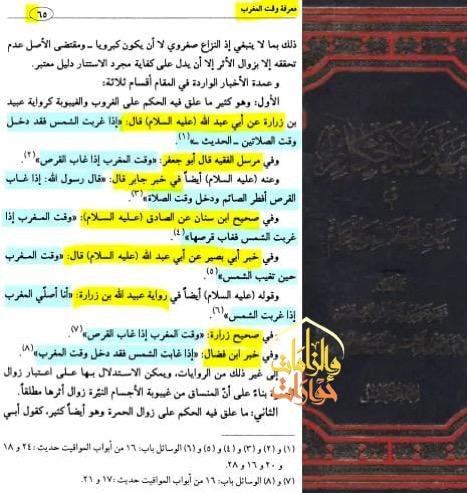 معرفة وقت المغرب
٦٥
ذلك بما لا ينبغي إذ النزاع صغروي لا أن يكون كبرويا ـ ومقتضى الأصل عدم
تحققه إلا بزوال الأثر إلا أن يدل على كفاية مجرد الاستتار دليل معتبر.
و عمدة الأخبار الواردة في المقام أقسام ثلاثة:
الأول: وهو كثير ما علق فيه الحكم على الغروب والغيبوبة كرواية عبيد
بن زرارة عن أبي عبد الله (عليه السلام) قال: «إذا غربت الشمس فقد دخل
وقت الصلاتين ـ الحديث ـ»(١).
وفي مرسل الفقيه قال أبو جعفر: «وقت المغرب إذا غاب القرص»(٢).
وعنه (عليه السلام) أيضاً في خبر جابر قال: «قال رسول الله: إذا غاب
القرص أفطر الصائم ودخل وقت الصلاة»(٣).
وفي صحيح ابن سنان عن الصادق (عليه السلام): «وقت المغرب إذا
غربت الشمس فغاب قرصها»(٤).
وفي خبر أبي بصير عن أبي عبد الله (عليه السلام) قال: «وقت المغرب
حين تغيب الشمس»(٥)
وقوله (عليه السلام) أيضاً في رواية عبيد الله بن زرارة: «أنا أصلّي المغرب
إذا غربت الشمس»(٦).
في صحيح زرارة: «وقت المغرب إذا غاب القرص»(٧)
وفي خبر ابن فضال: «إذا غابت الشمس فقد دخل وقت المغرب»(٨)
إلى غير ذلك من الروايات، ويمكن الاستدلال بها على اعتبار زوال
بناءً على أنّ المنساق من غيبوبة الأجسام النيّرة زوال أثرها مطلقاً.
الثاني: ما علق فيه الحكم على زوال الحمرة وهو أيضاً كثير، كقول أبي
(١) و (٢) و (٣) و (٤) و (٥) و (٦) الوسائل باب: ١٦ من أبواب المواقيت حديث: ٢٤ و ١٨
و ٢٠ و ١٦ و ٢٨.
(٧) و (٨) الوسائل باب: ١٦ من أبواب المواقيت حديث: ١٧ و ٢١.
والزامات
حوارات